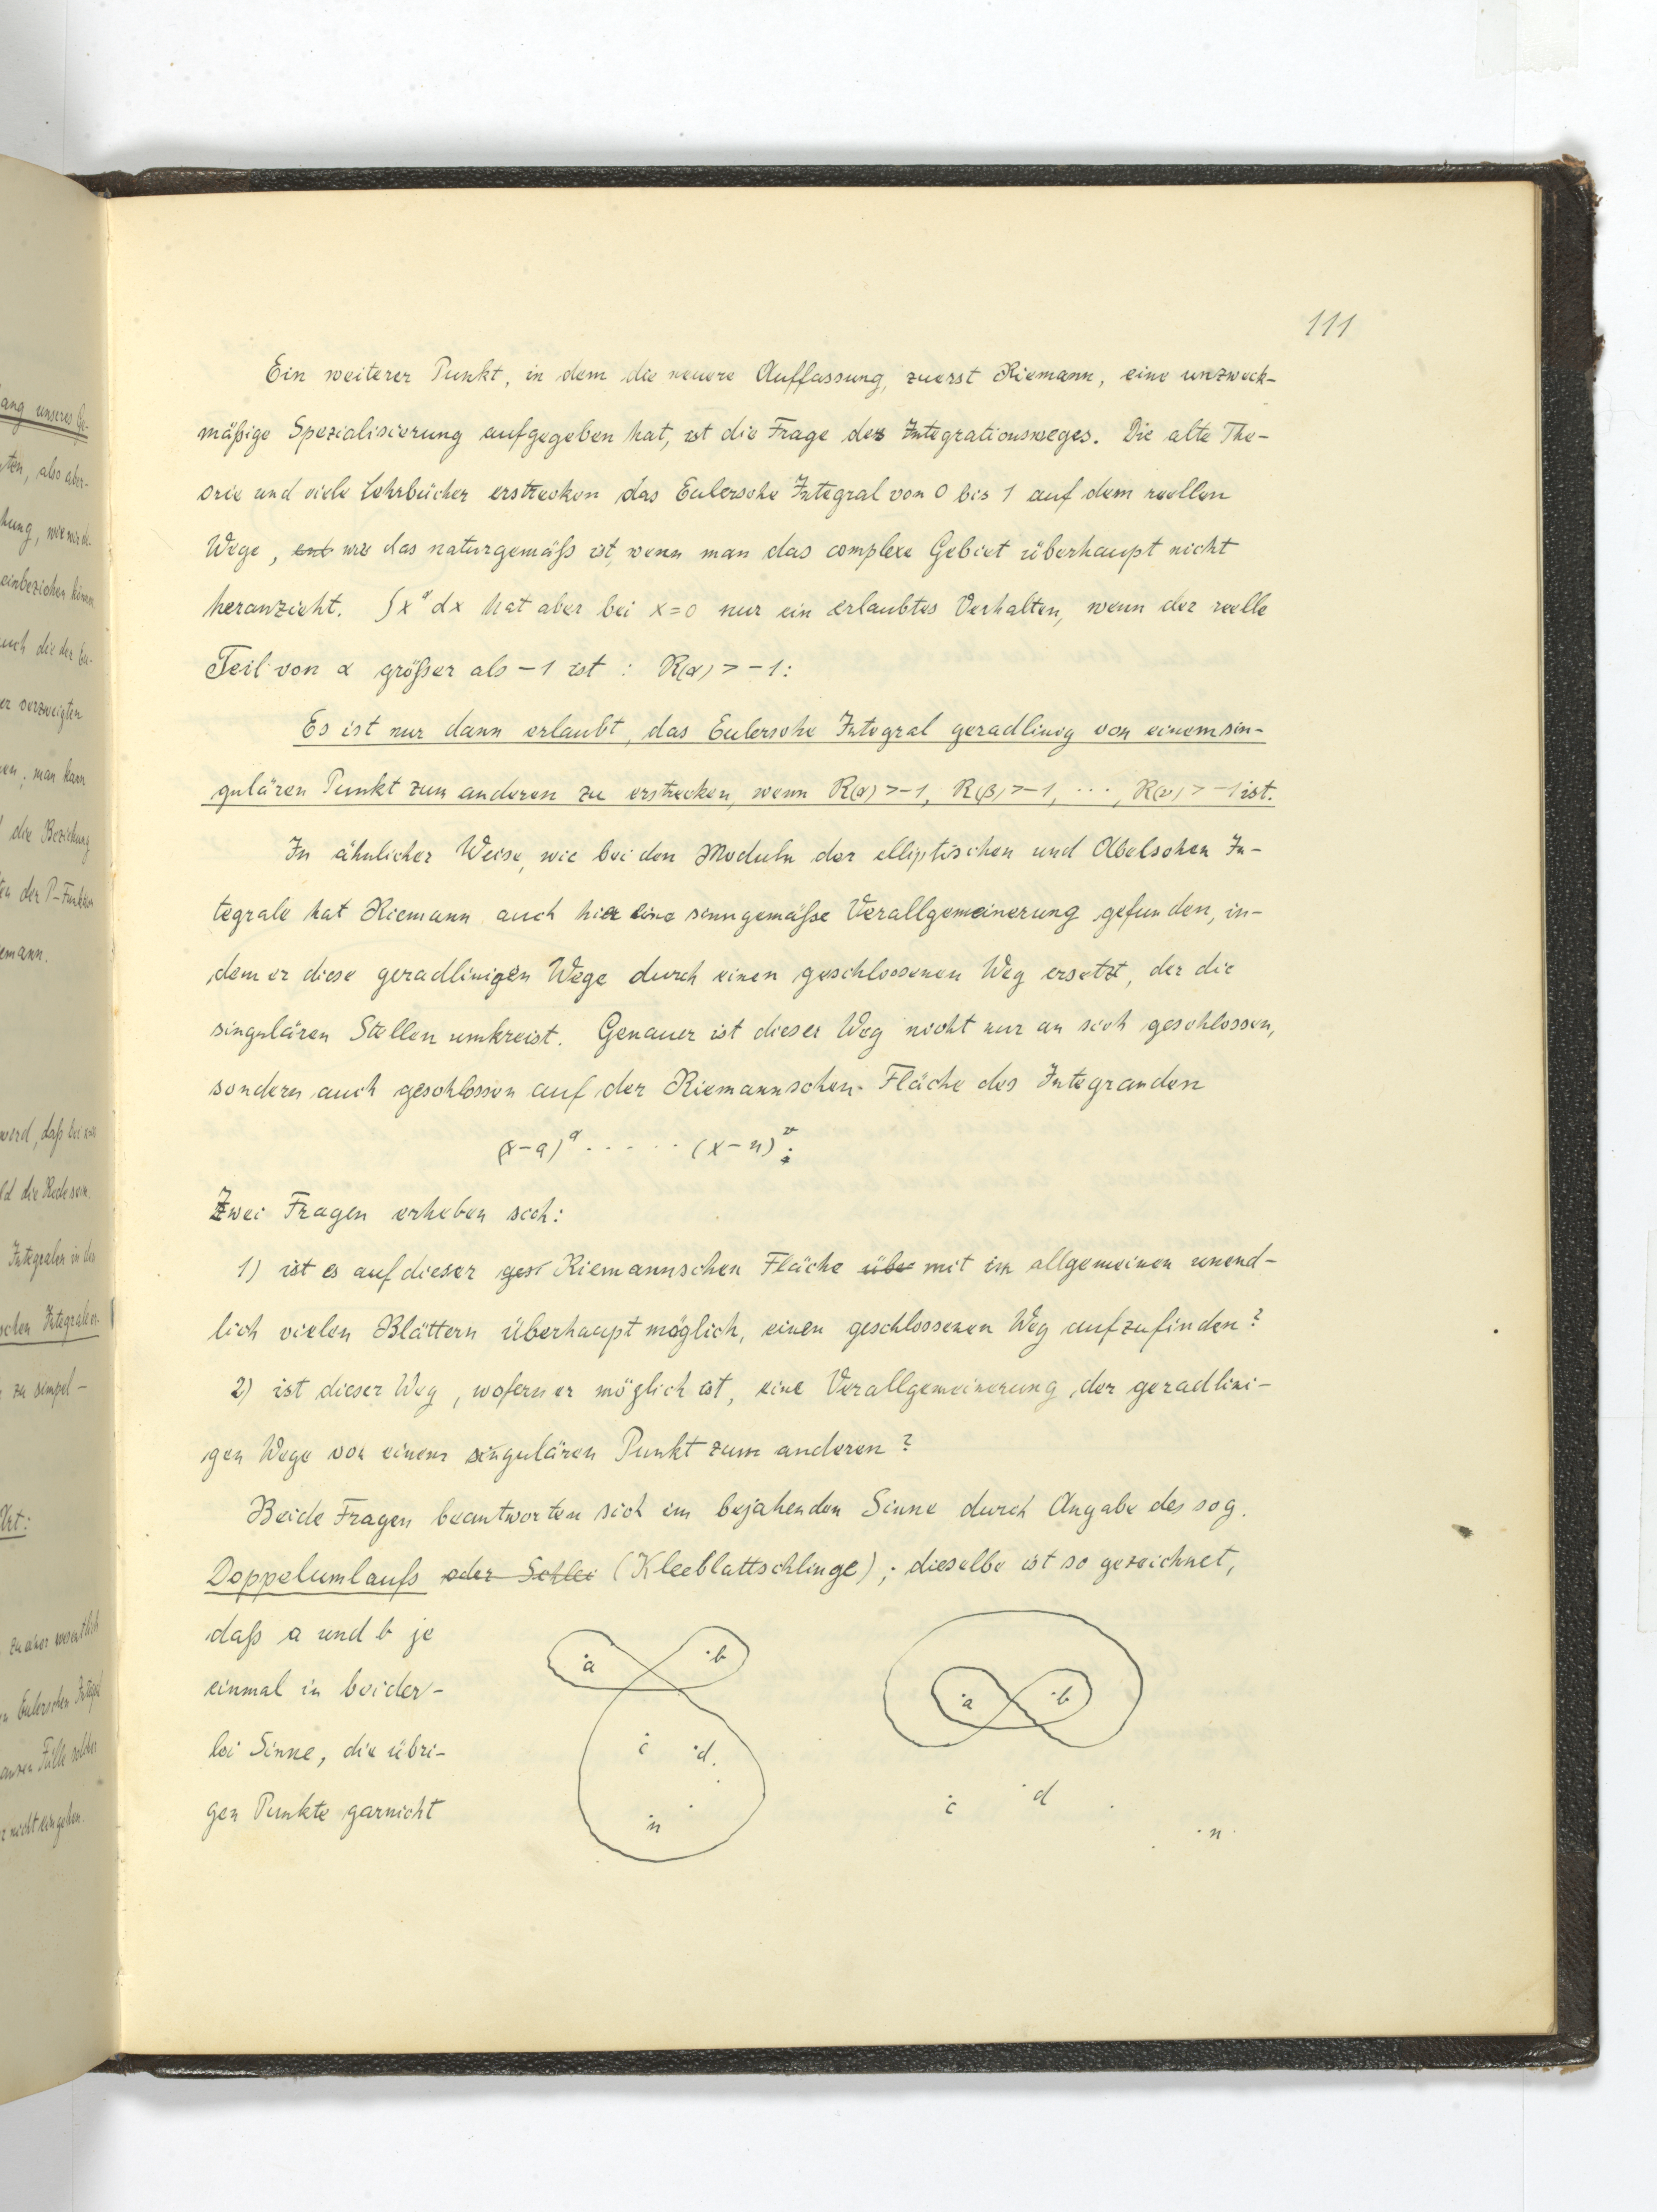 111
Ein weiterer Punkt, in dem die neuere Auffassung, zuerst Riemann, eine unzweck-
mäßige Spezialisierung aufgegeben hat, ist die Frage des Integrationsweges. Die alte The-
orie und viele Lehrbücher erstrecken das Eulersche Integral von 0 bis 1 auf dem reellen
Wege, ent wie das naturgemäß ist, wenn man das complexe Gebiet überhaupt nicht
heranzieht. ∫x^α dx hat aber bei x=0 nur ein erlaubtes Verhalten, wenn der reelle
Teil von α größer als -1 ist : R(α) > -1:
Es ist nur dann erlaubt, das Eulersche Integral geradlinig von einem sin-
gulären Punkt zum anderen zu erstrecken, wenn R(α) > -1, R(β) > -1, ..., R(ν) > -1 ist.
In ähnlicher Weise, wie bei den Moduln der elliptischen und Abelschen In-
tegrale hat Riemann auch hier eine sinngemäße Verallgemeinerung gefunden, in-
dem er diese geradlinigen Wege durch einen geschlossenen Weg ersetzt, der die
singulären Stellen umkreist. Genauer ist dieser Weg nicht nur an sich geschlossen,
sondern auch geschlossen auf der Riemannschen Fläche des Integranden
(x-a)^α ..... (x-n)^ν.
Zwei Fragen erheben sich:
1) ist es auf dieser ges Riemannschen Fläche übe mit im allgemeinen unend-
lich vielen Blättern überhaupt möglich, einen geschlossenen Weg aufzufinden?
2) ist dieser Weg, wofern er möglich ist, eine Verallgemeinerung der geradlini-
gen Wege von einem singulären Punkt zum anderen?
Beide Fragen beantworten sich im bejahenden Sinne durch Angabe des sog.
Doppelumlaufs oder Schlei (Kleeblattschlinge); dieselbe ist so gezeichnet,
daß a und b je
einmal in beider-
lei Sinne, die übri-
gen Punkte garnicht
a b
c d
n
a b
c d
n